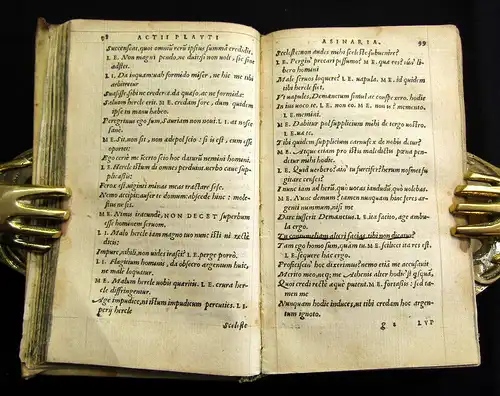 98 ACTII PLAVTI
Succenseat, quoi omniũ rerũ ipsius summã credidit,
L E. Non magni pendo, ne duit, si non volt, sic sine
adstet.
L I. Da inquam: vah formido miser, ne hic me tibi
arbitretur
Suasisse, sibi ne crederes. da quæso, ac ne formida:
Saluom hercle erit. M E. credam fore, dum quidem
ipse in manu habeo.
Peregrinus ego sum, Sauriam non noui. L I. at nosce
sane.
M E. Sit, non sit, non ædepol scio: si is est, eum esse
oportet:
Ego certe me incerto scio hoc daturũ nemini homini.
L E. Hercle istum di omnes perduint. verbo caue sup
plicassis:
Ferox est viginti minas meas tractare sese.
Nemo accipit. aufer te domum, abscede hinc: mole-
stus ne sis.
M E. Nimis iracunde, NON DECET superbum
esse hominem seruum.
L E. Malo hercle iam magno tuo nunc isti ni recte
dicis:
Impure, nihili, non vides irasci? L E. perge porrò.
L I. Flagitium hominis, da obsecro argentum huic,
ne male loquatur.
M E. Malum hercle vobis quæritis. L E. crura hercle
diffringentur.
Age impudice, ni istum impudicum percuties. L I.
perij hercle
Sceleste
ASINARIA. 99
Sceleste: non audes mihi scelesto subuenire?
L E. Pergin' precari pessumo? M E. quæ res? tun'
libero homini
Male seruos loquere? L E. vapula. M E. id quidem
tibi hercle fiet.
Vt vapules, Demænetum simul ac conspexero. hodie
In ius voco te. L E. non eo. M E. non is? memento.
L E. memini.
M E. Dabitur pol supplicium mihi de tergo vostro.
L E. væ te.
Tibi quidem supplicium carnufex de nobis detur?
M E. Atque etiam pro istis maledictis pœna pen
detur mihi hodie.
L E. Quid verbero? ain' tu furcifer? herum nosmet fu
gitare censes?
I nunc iam ad herum, quò vocas iamdudũ, quò volebas.
M E. Nunc demum? tamen nunquam hinc feres ar-
genti nummum, nisi me
Dare iusserit Demænetus. L E. ita facito, age am-
bula ergo.
Tu contumeliam alteri facias, tibi non dicatur?
Tam ego homo sum, quam tu. M E. Scilicet ita res est.
L E. sequere hac ergo.
Præfiscini hoc nunc dixerim: nemo etiã me accusauit
Merito meo, neq; me Athenis alter est hodie quisquã,
Quoi credi rectè æquè putent. M E. fortassis: sed ta
men me
Nunquam hodie induces, ut tibi credam hoc argen
tum ignoto.
g 2 LVP